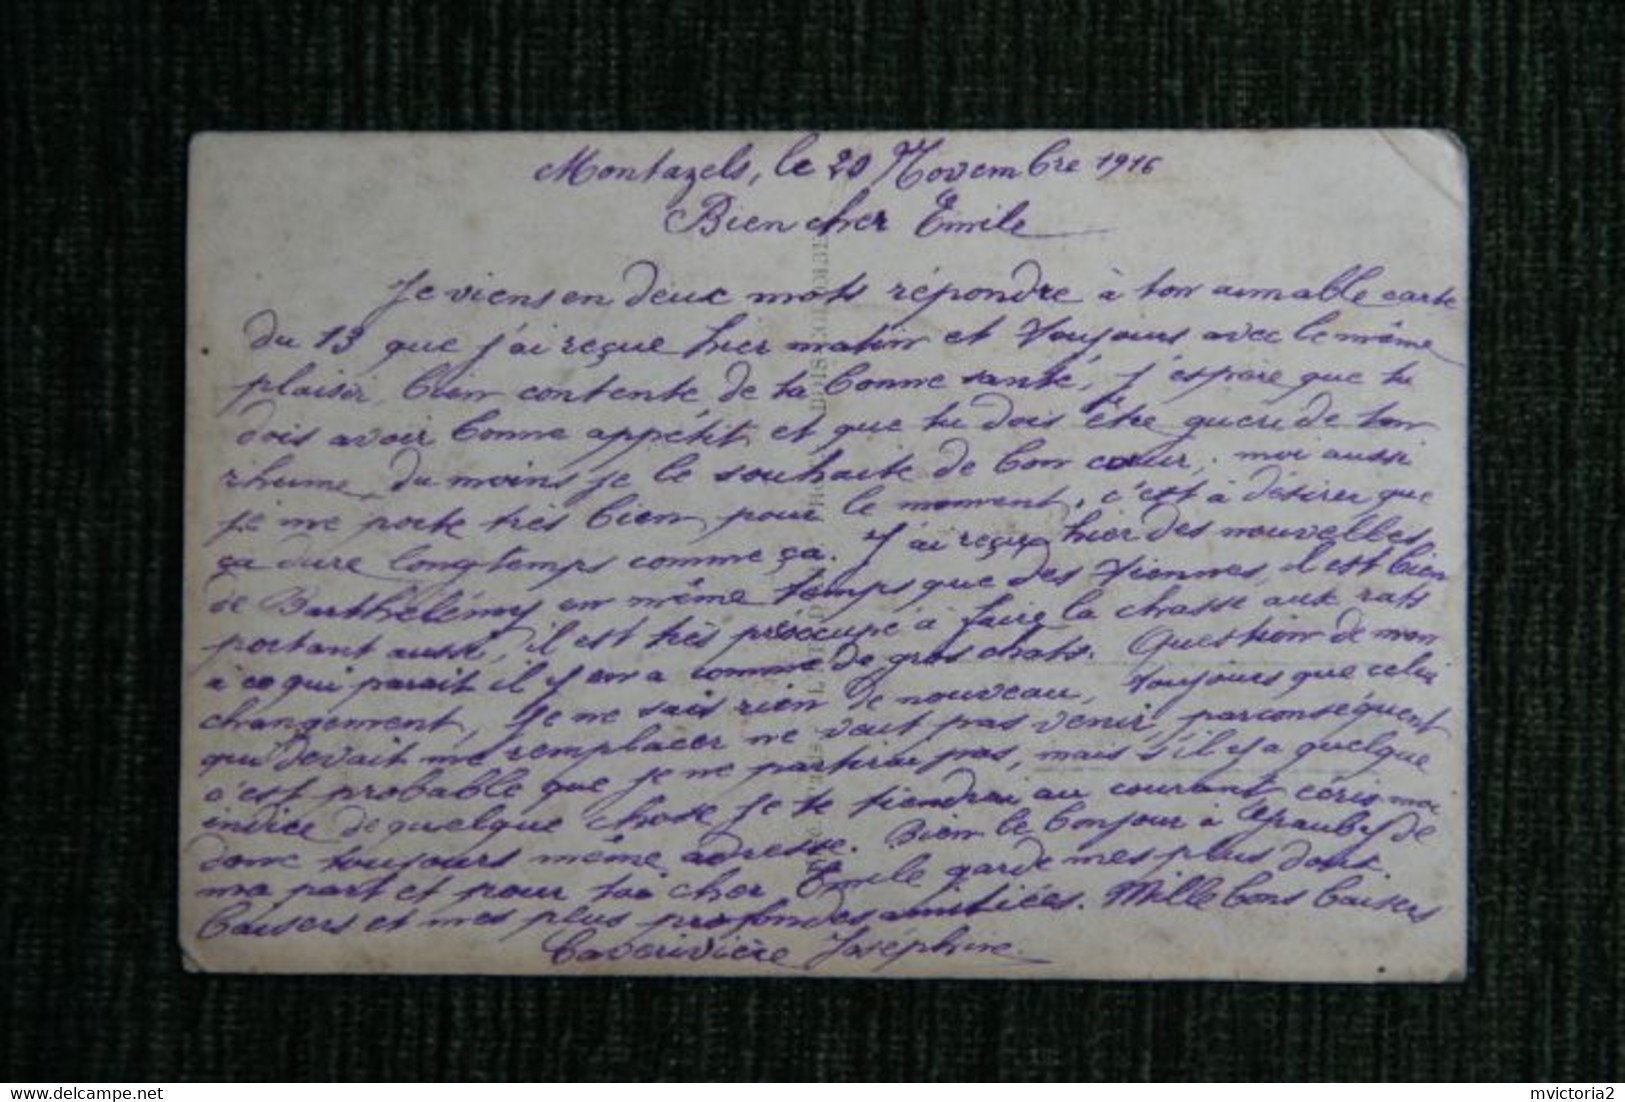 Montazels, le 20 Novembre 1916
Bien cher Emile
Je viens en deux mots répondre à ton aimable carte
du 13 que j'ai reçue hier matin et toujours avec le même
plaisir, bien contente de ta bonne santé, j'espère que tu
dois avoir bonne appétit et que tu dois être guéri de ton
rhume, du moins je le souhaite de bon cœur, moi aussi
je me porte très bien pour le moment, c'est à désirer que
ça dure longtemps comme ça. J'ai reçue hier des nouvelles
de Barthélémy en même temps que des tiennes, il est bien
portant aussi, il est très préoccupé à faire la chasse aux rats
à ce qui parait il y en a comme de gros chats. Question de mon
changement, je ne sais rien de nouveau, toujours que celui
qui devait me remplacer ne veut pas venir, parconséquent
c'est probable que je ne partirai pas, mais s'il y a quelque
indice de quelque chose je te tiendrai au courant écris moi
donc toujours même adresse. Bien le bonjour à de
ma part et pour toi cher Emile garde mes plus doux
baisers et mes plus profondes amitiées. Mille bons baisers
Caverivière Joséphine
delcampe.net
mvictoria2